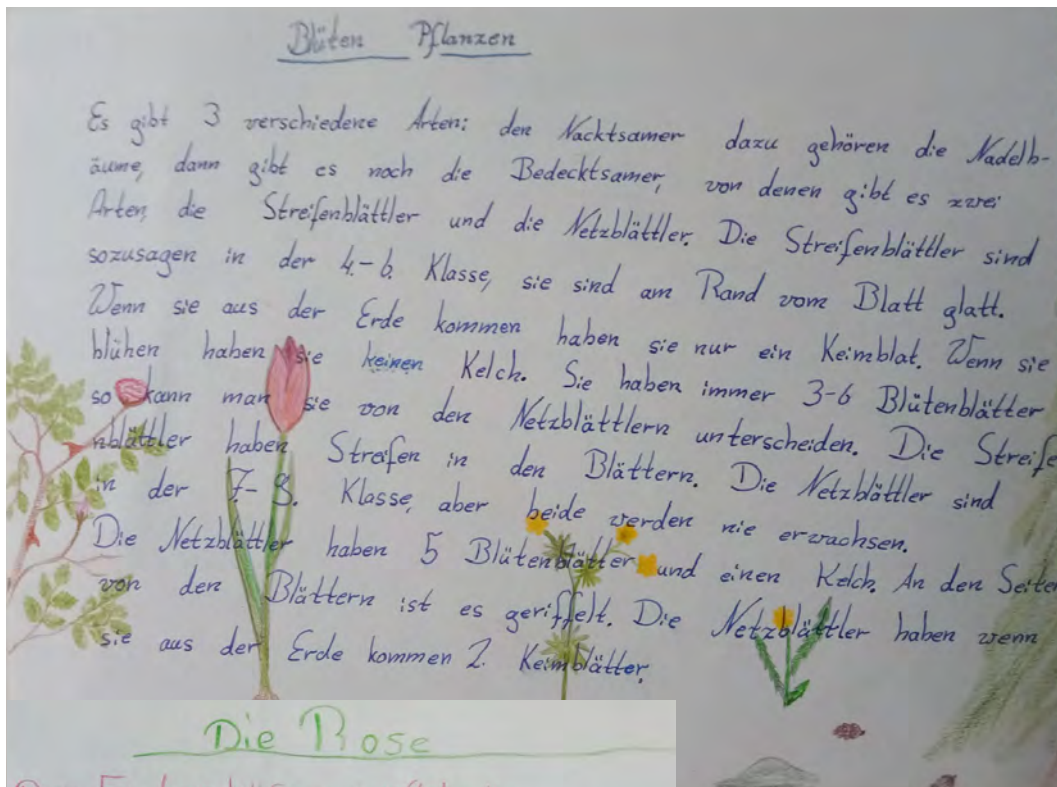 Blüten Pflanzen
Es gibt 3 verschiedene Arten: den Nacktsamer dazu gehören die Nadelb-
äume, dann gibt es noch die Bedecktsamer, von denen gibt es zwei
Arten, die Streifenblättler und die Netzblättler. Die Streifenblättler sind
sozusagen in der 4.-6. Klasse, sie sind am Rand vom Blatt glatt.
Wenn sie aus der Erde kommen haben sie nur ein Keimblat. Wenn sie
blühen haben sie keinen Kelch. Sie haben immer 3-6 Blütenblätter
so kann man sie von den Netzblättlern unterscheiden. Die Streife
nblättler haben Streifen in den Blättern. Die Netzblättler sind
in der 7-8. Klasse, aber beide werden nie erwachsen.
Die Netzblättler haben 5 Blütenblätter und einen Kelch. An den Seiten
von den Blättern ist es geriffelt. Die Netzblättler haben wenn
sie aus der Erde kommen 2. Keimblätter.
Die Rose